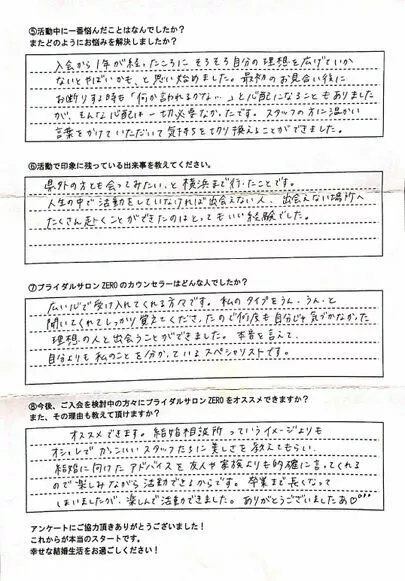 ⑤活動中に一番悩んだことはなんでしたか?
またどのようにお悩みを解決しましたか?
入会から1年が経ったころに そろそろ自分の理想を広げていか
ないとやばいかも、と思い始めました。最初のお見合い後に
お断りする時も「何か言われるかな…」と心配になることもありました
が、そんな心配は一切必要なかったです。スタッフの方に温かい
言葉をかけていただいて気持ちを切り換えることができました。
⑥活動で印象に残っている出来事を教えてください。
県外の方とも会ってみたい、と横浜まで行ったことです。
人生の中で活動をしていなければ出会えない人、出会えない場所へ
たくさん赴くことができたのはとってもいい経験でした。
⑦ブライダルサロンZEROのカウンセラーはどんな人でしたか?
広い心で受け入れてくれる方々です。私のタイプをうん、うん、と
聞いてくれてしっかり覚えてくださったので何度も自分じゃ気づかなかった
理想の人と出会うことができました。本音を言えて、
自分よりも私のことを分かっているスペシャリストです。
⑧今後、ご入会を検討中の方々にブライダルサロンZEROをオススメできますか?
また、その理由も教えて頂けますか?
オススメできます。結婚相談所っていうイメージよりも
オシャレでかっこいいスタッフたちに美しさを教えてもらい、
結婚に向けたアドバイスを友人や家族よりも的確に言ってくれる
ので楽しみながら活動できるからです。卒業まで長くなって
しまいましたが、楽しんで活動できました。ありがとうございましたぁ♡
アンケートにご協力頂きありがとうございました!
これからが本当のスタートです。
幸せな結婚生活をお過ごしください!